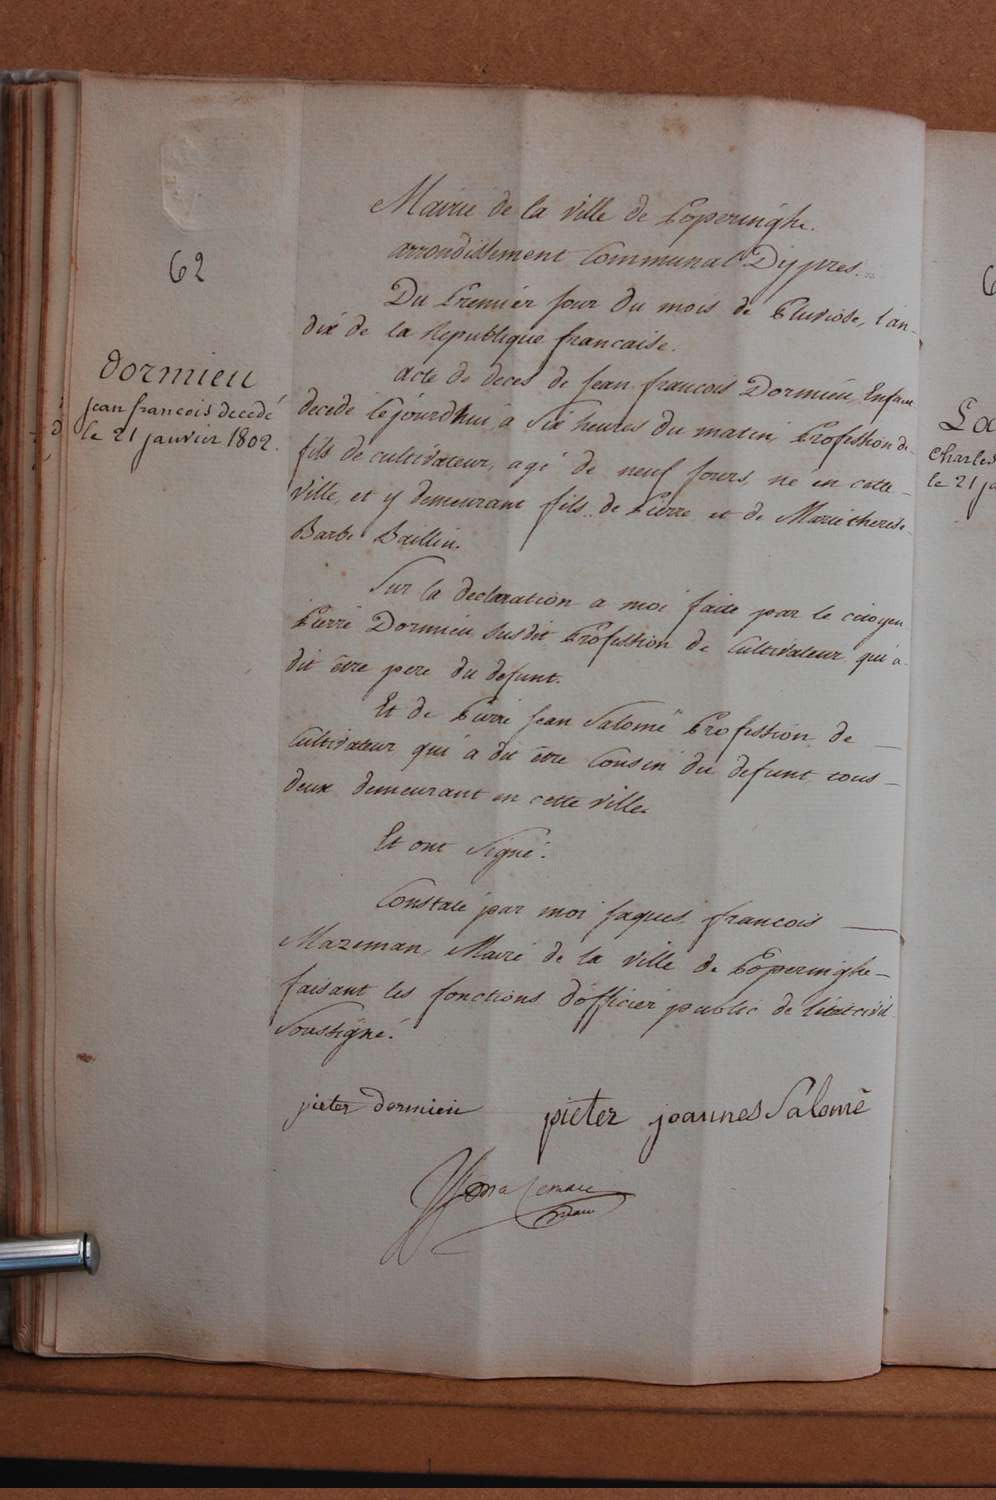 62
Dormieu
jean francois decedé
le 21 janvier 1802.
Mairie de la ville de Poperinghe.
arrondissement Communal Dijpres.
Du Premier jour du mois de Pluviose, l'an-
dix de la Republique francaise.
acte de deces de jean francois Dormieu, Enfant
decedé Cejourdhui à six heures du matin, Profession de
fils de cultivateur, agé de neuf jours, né en cette
ville, et y demeurant fils de Pierre et de Marie therese
Barbe Baillin.
Sur la declaration a moi faite par le citoyen
Pierre Dormieu susdit Profession de Cultivateur qui a
dit être pere du defunt.
Et de Pierre jean Salomé Profession de
Cultivateur qui a dit être Cousin du defunt tous
deux demeurant en cette ville.
Et ont Signé.
Constaté par moi jaques francois
Mazeman, Maire de la ville de Poperinghe
faisant les fonctions d'officier public de l'état civil
Soussigné.
pieter dormieu
pieter joannes Salomé
charles
le 21 ja